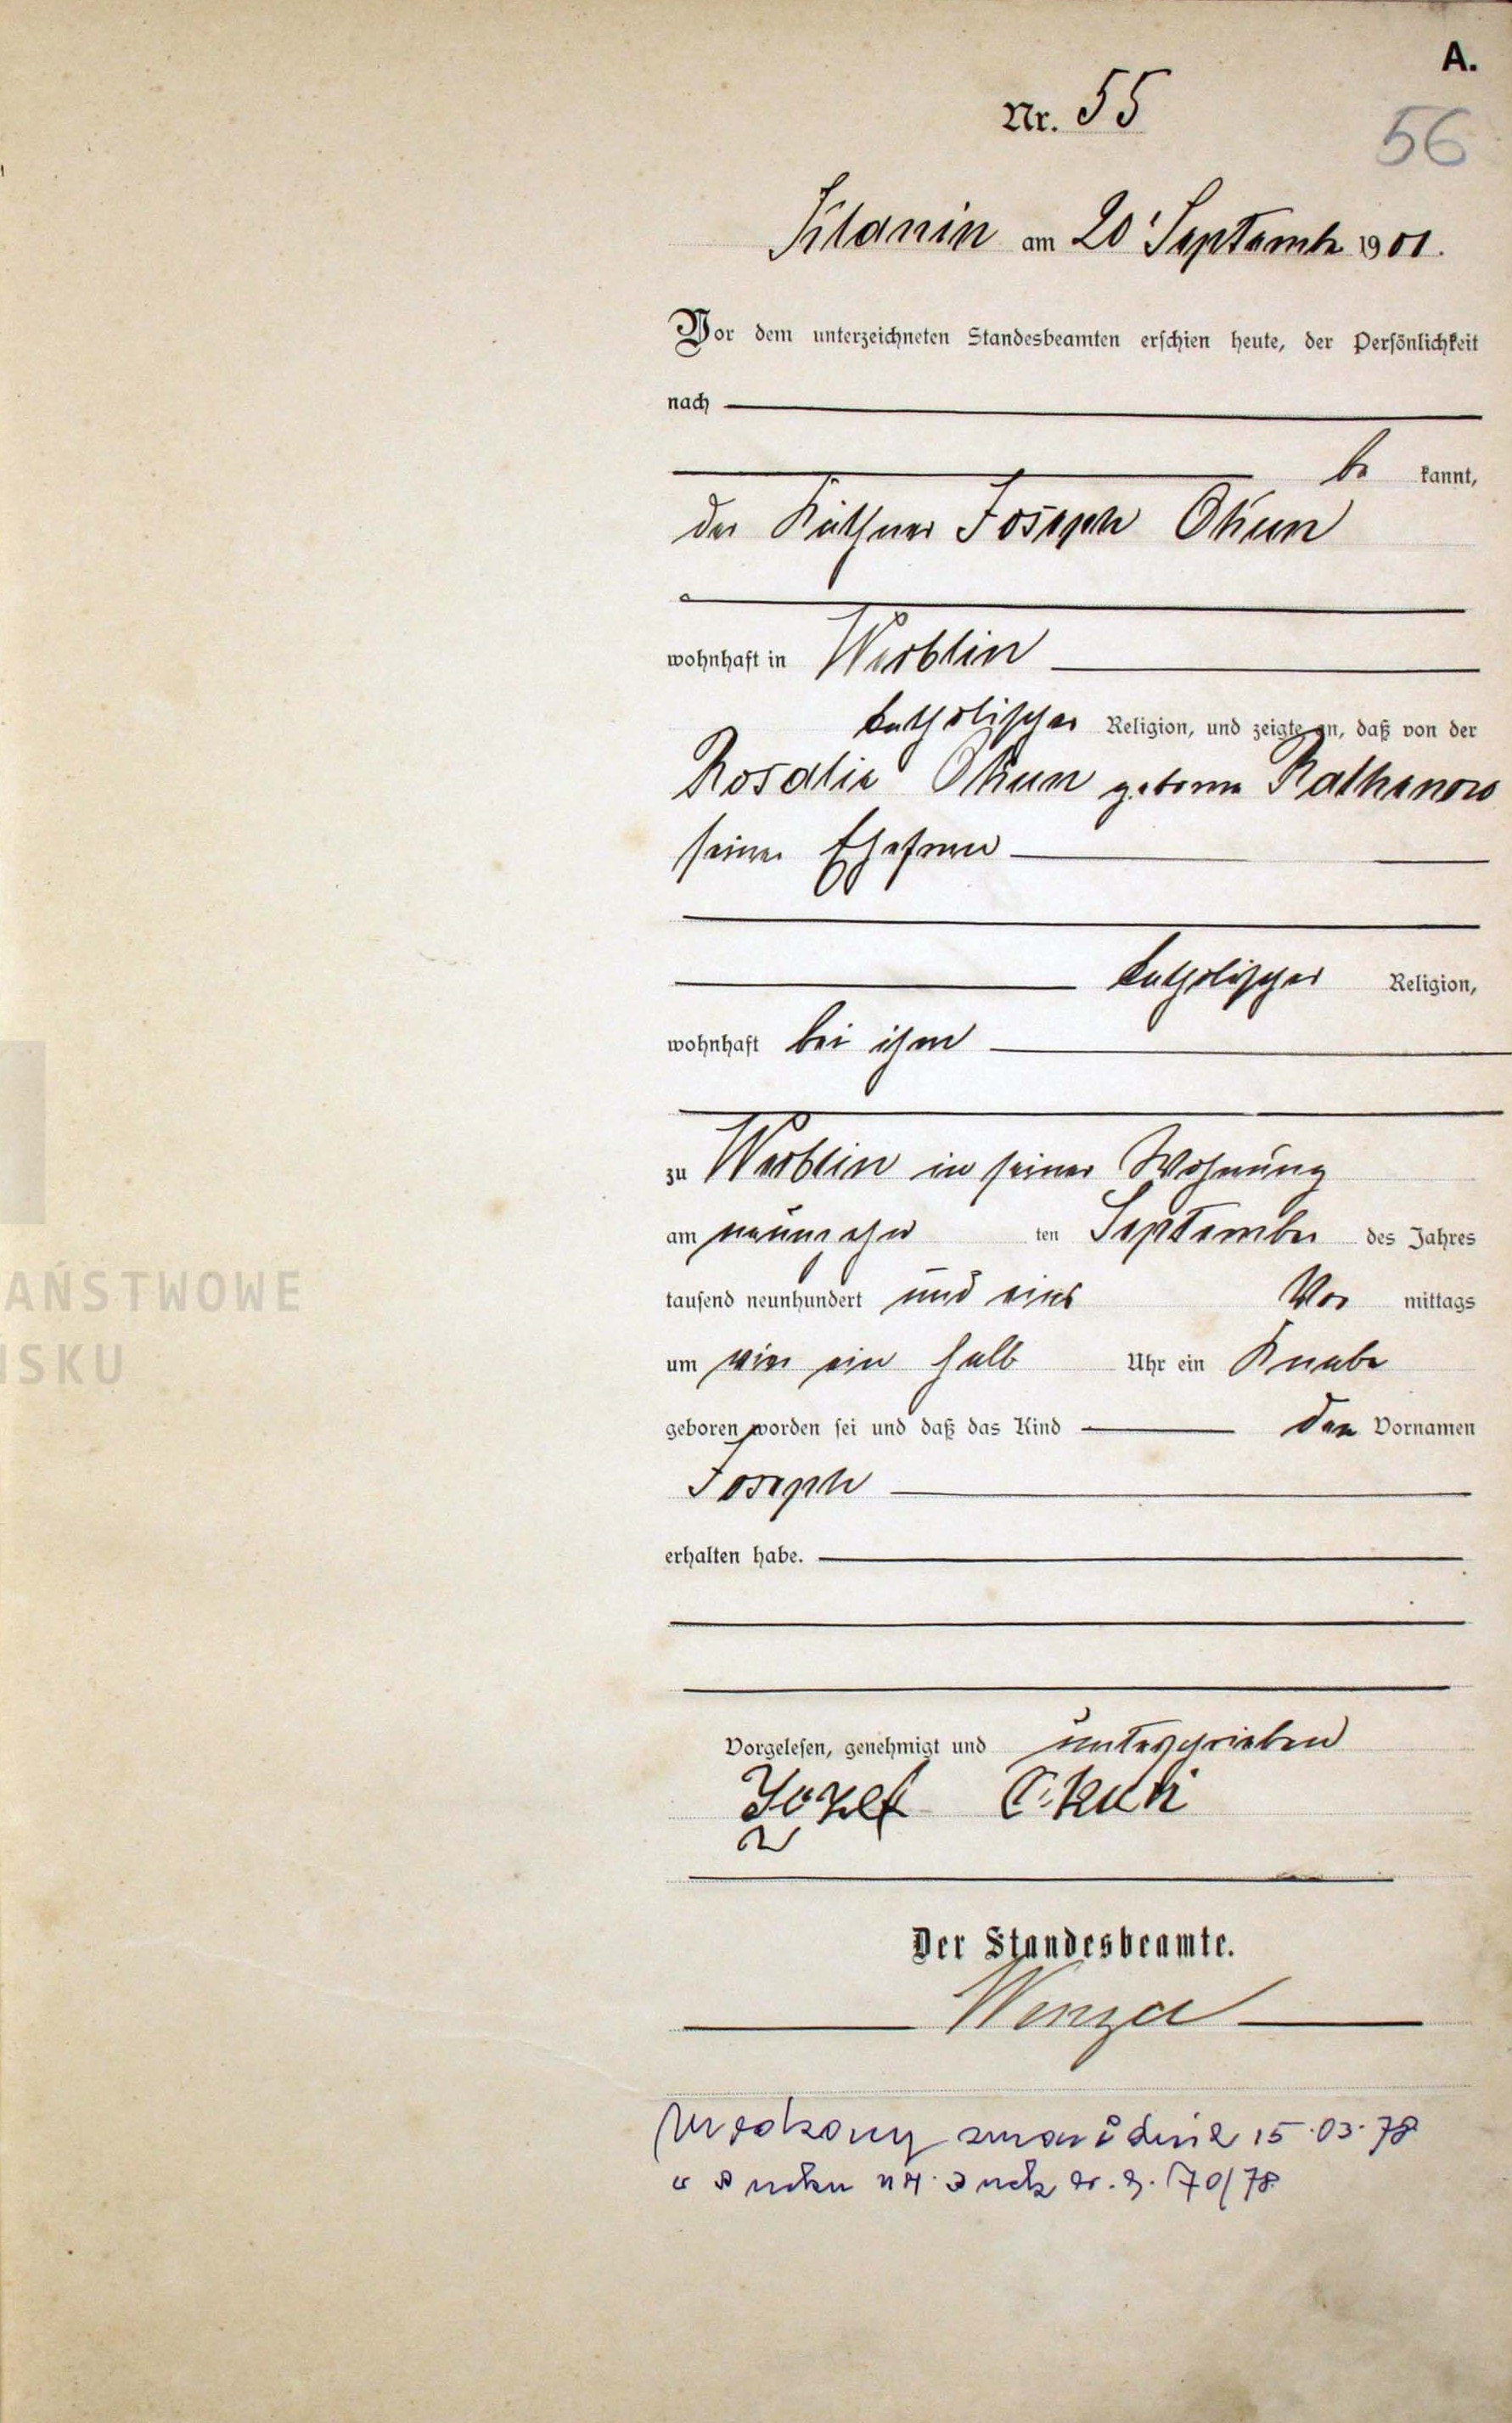 A.
Nr. 55
56
Klanin am 20 Septembr 1901.
Vor dem unterzeichneten Standesbeamten erschien heute, der Persönlichkeit
nach
be kannt,
der Käthner Joseph Okun
wohnhaft in Werblin
katholischer Religion, und zeigte an, daß von der
Rosalie Okun geborene
seiner Ehefrau
katholischer Religion,
wohnhaft bei ihm
zu Werblin in seiner Wohnung
am neunzehn ten September des Jahres
tausend neunhundert und eins Vor mittags
um vier ein halb Uhr ein Knabe
geboren worden sei und daß das Kind den Vornamen
Joseph
erhalten habe.
Vorgelesen, genehmigt und unterschrieben
Jozef Okuń
Der Standesbeamte.
15.03.78
70/78
AŃSTWOWE
ŃSKU